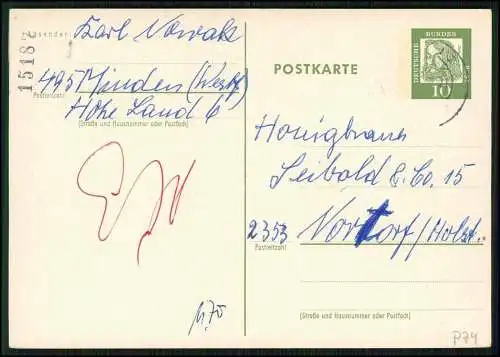 15182
Absender: Karl Nowak
495 Minden (Westf)
Postleitzahl
Hohe Land 6
(Straße und Hausnummer oder Postfach)
POSTKARTE
DEUTSCHE BUNDESPOST
10
Honigbraus
Seibold & Co. 15
2353 Nortorf/Holst.
Postleitzahl
(Straße und Hausnummer oder Postfach)
P74